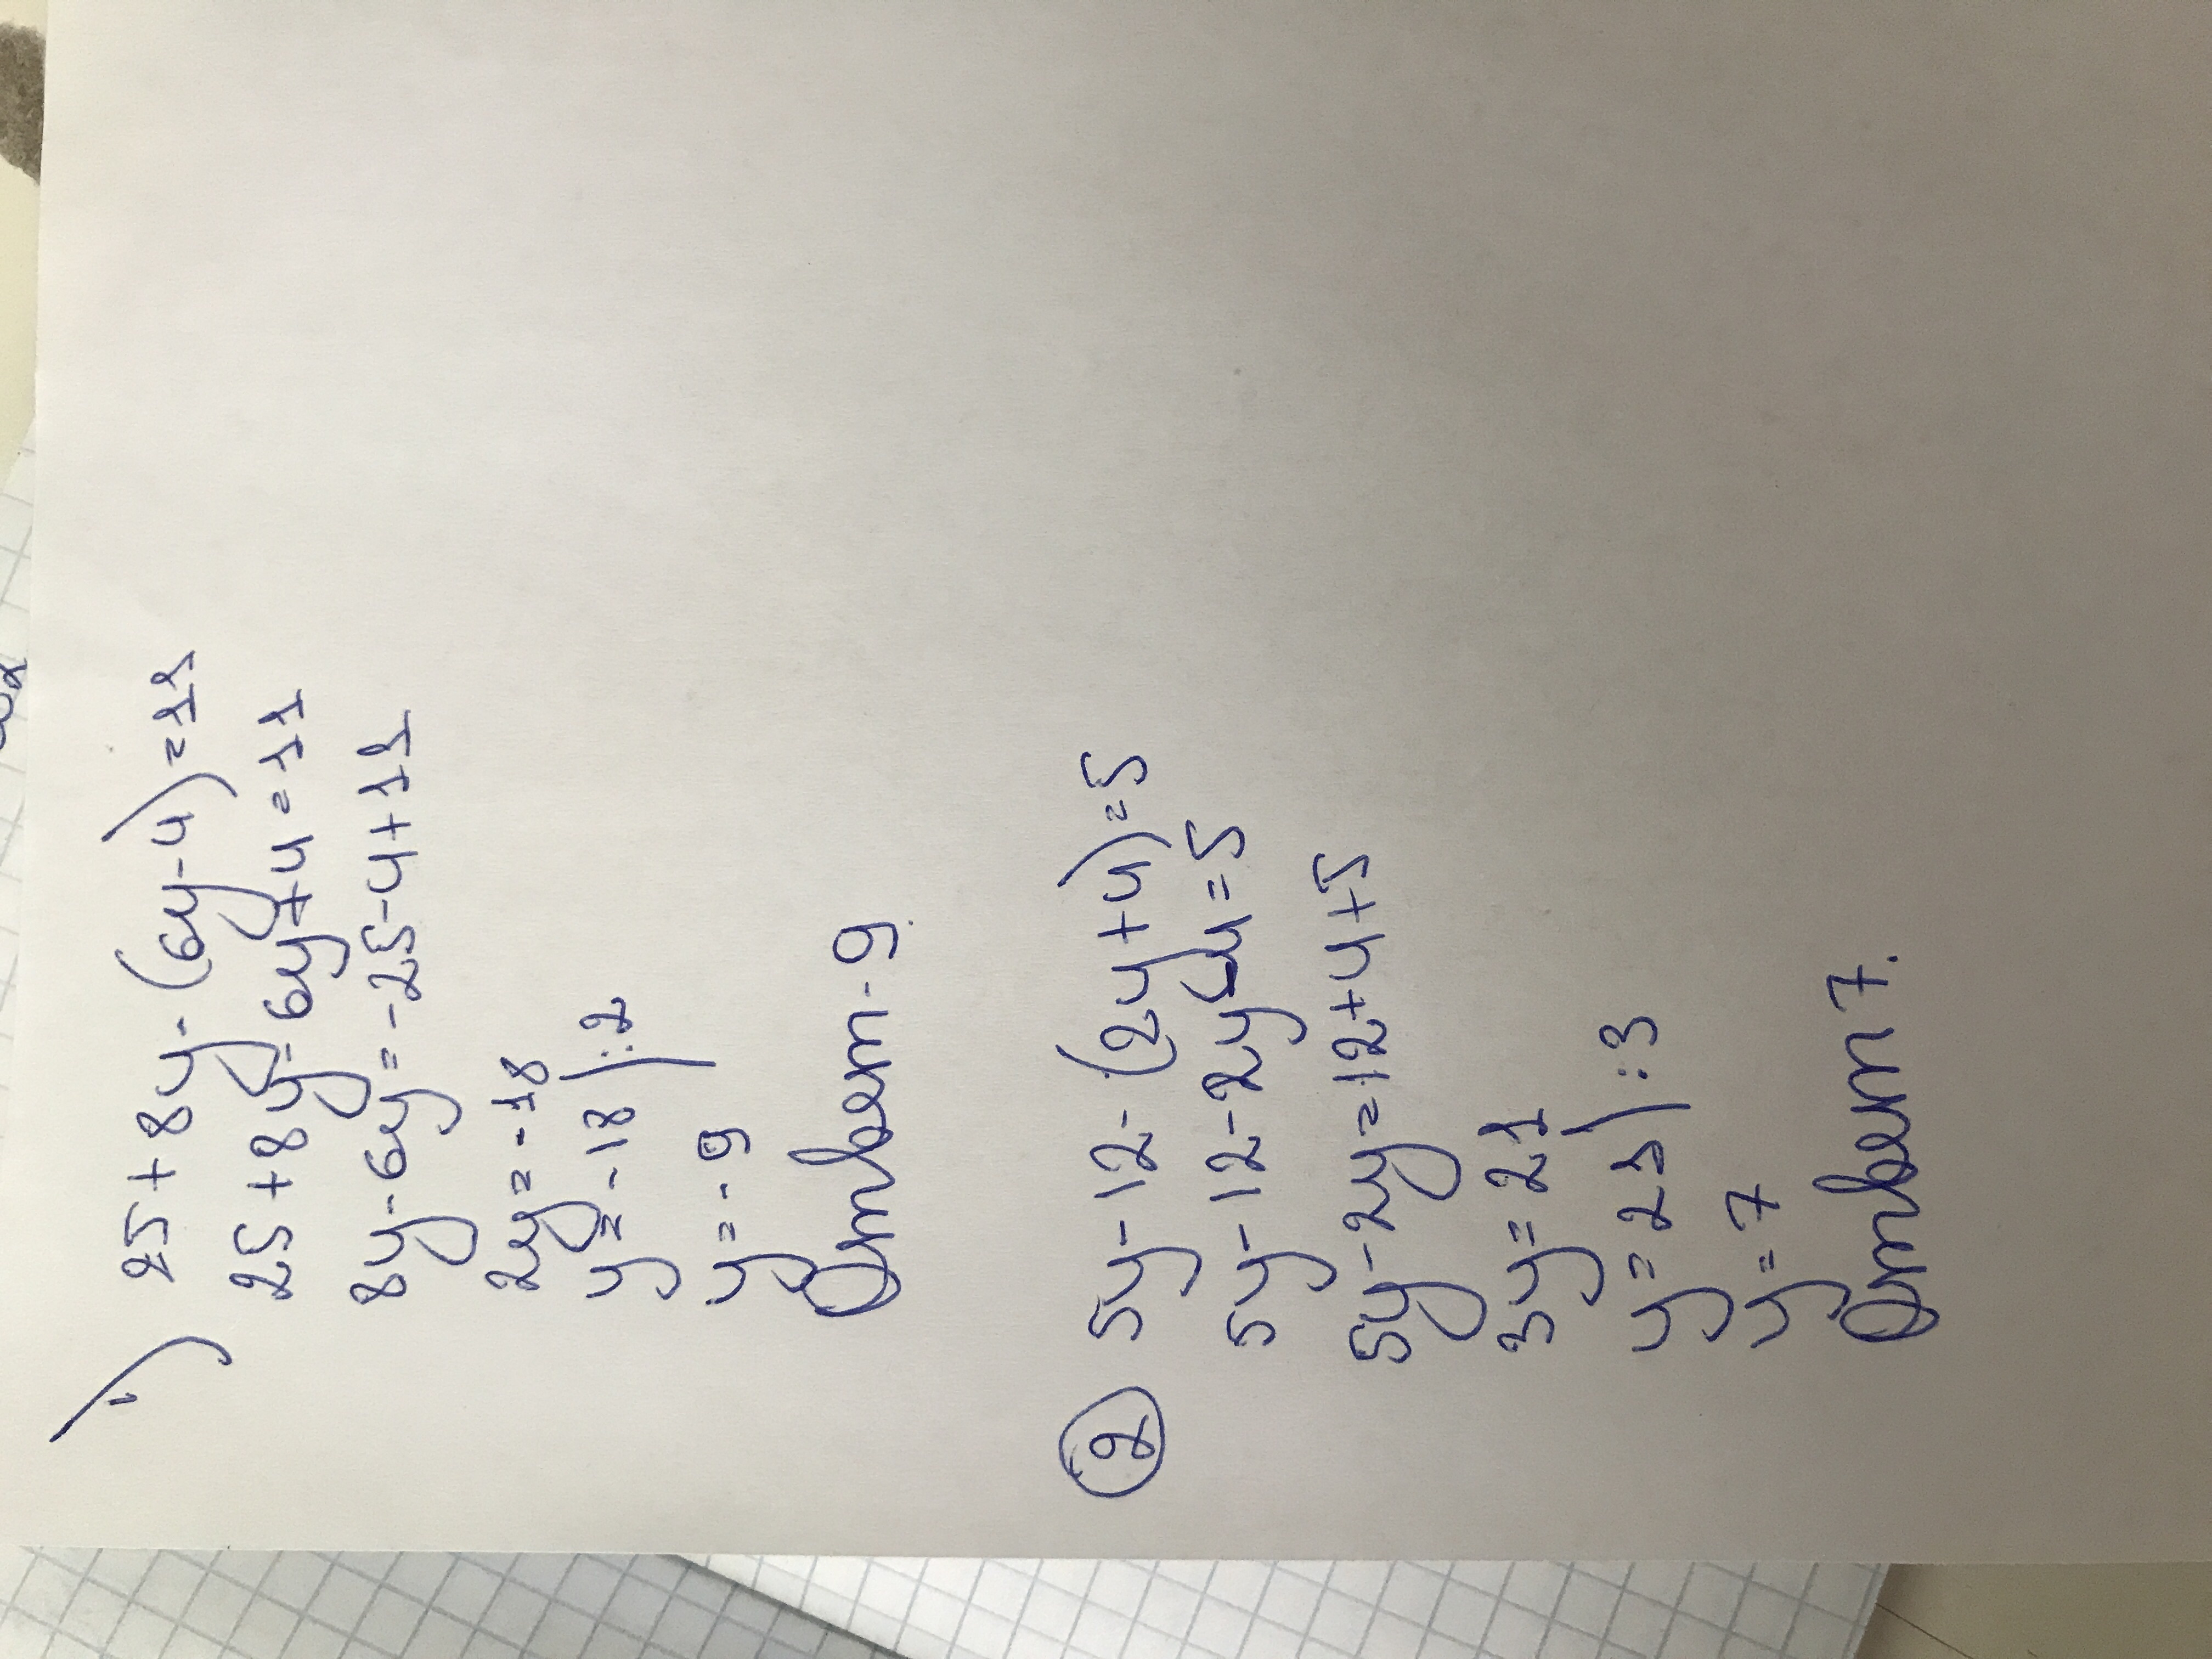 1) 25+8y-(6y-4)=11
25+8y-6y+4=11
8y-6y=-25-4+11
2y=-18
y=-18|:2
y=-9
Ответ-9.
2 5y-12-(2y+4)=5
5y-12-2y-4=5
5y-2y=12+4+5
3y=21
y=21|:3
y=7
Ответ 7.